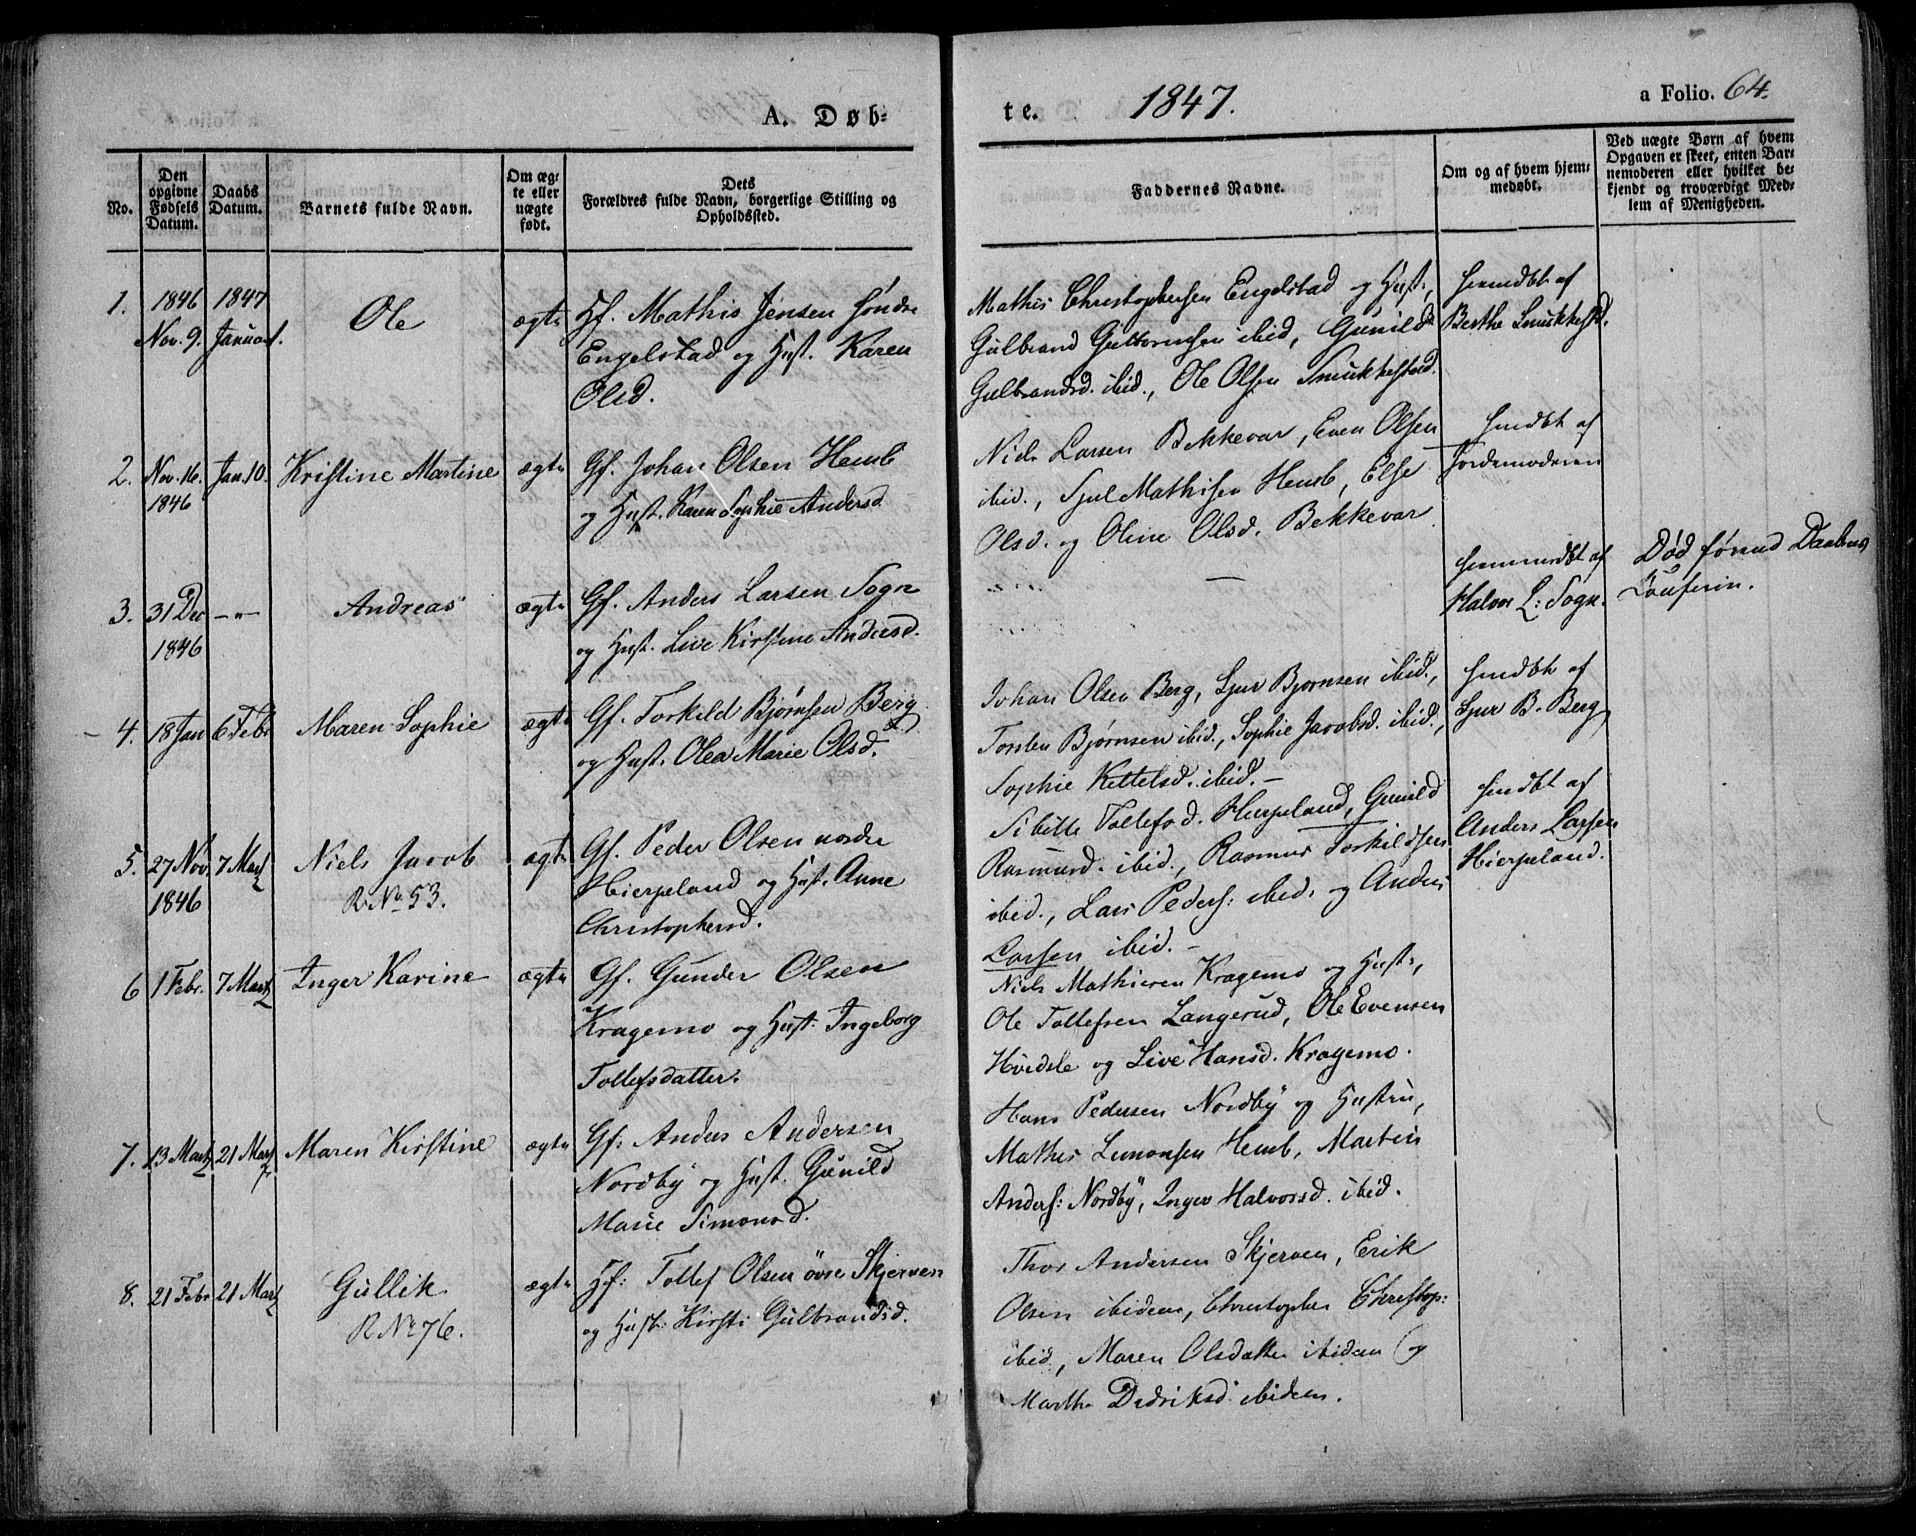 A. Døb-
te. 1847. a Folio. 64.
No.
Den opgivne Fødsels Datum.
Daabs Datum.
Barnets fulde Navn.
Om ægte eller uægte født.
Dets Forældres fulde Navn, borgerlige Stilling og Opholdssted.
Faddernes Navne.
Om og af hvem hjemmedøbt.
Ved uægte Børn af hvem Opgaven er skeet, enten Barnemoderen eller hvilket bekjendt og troværdigt Medlem af Menigheden.
1. 1846 Nov. 9. 1847 Januar 1. Ole ægte
Gf. Mathis Jensen søndre
Engelstad og Hust. Karen
Olsd.
Mathis Christophersen Engelstad og Hust:,
Gulbrand Guttormsen ibid, Gunild
Gulbrandsd. ibid., Ole Olsen Smukkestad.
hjemmdbt af
Berthe Smukkestd.
2. Nov. 16. 1846 Jan. 10. Kristine Martine ægte
Gf. Johan Olsen Hemb
og Hust. Karen Sophie Andersd
Niels Larsen Bekkevar, Even Olsen
ibid., Sjul Mathisen Hemb, Else
Olsd. og Oline Olsd. Bekkevar
hmdbt af
Jordemoderen
3. 31 Dec 1846 -"- Andreas ægte
Gf. Anders Larsen Sogn
og Hust. Live Kirstine Andersd.
—
hjemmedbt af
Halvor L: Sogn.
Død førend Daabens
4. 18 Jan 6 Febr Maren Sophie ægte
Gf. Torkild Bjørnsen Berg
og Hust. Olea Marie Olsd.
Johan Olsen Berg, Sjur Bjornsen ibid.,
Torsten Bjørnsen ibid., Sophie Jacobsd. ibid.,
Sophie Kettelsd. ibid.-
hmdbt af
Sjur B. Berg
5. 27 Nov. 1846 7 Marz Niels Jacob ægte
R No. 53.
Gf. Peder Olsen nordre
Hierpeland og Hust. Anne
Christophersd.
Sibille Tollefsd. Hierpeland, Gunild
Rasmusd. ibid., Rasmus Torkildsen
ibid., Lars Peders: ibid. og Anders
Larsen ibid.-
hmdbt af
Anders Larsen
Hierpeland.
6 1 Febr. 7 Marz Inger Karine ægte
Gf. Gunder Olsen
Kragemo og Hust: Ingeborg
Tollefsdatter.
Niels Mathiesen Kragemo og Hust:,
Ole Tollefsen Langerud, Ole Evensen
Hvidsle og Live Hansd. Kragemo.
7. 13 Marz 21 Marz Maren Kirstine ægte
Gf: Anders Andersen
Nordby og Hust. Gunild
Marie Simonsd.
Hans Pedersen Nordby og Hustru,
Mathis Simonsen Hemb, Martin
Anders: Nordby, Inger Halvorsd. ibid.
8. 21 Febr 21 Marz Gullik ægte
R No 76.
Gf: Tollef Olsen övre Skjerven
og Hust: Kirsti Gulbrandsd.
Thor Andersen Skjerven, Erik
Olsen ibidem, Christopher Christop:
ibid., Maren Olsdatter ibidem og
Marthe Didriksd ibidem.